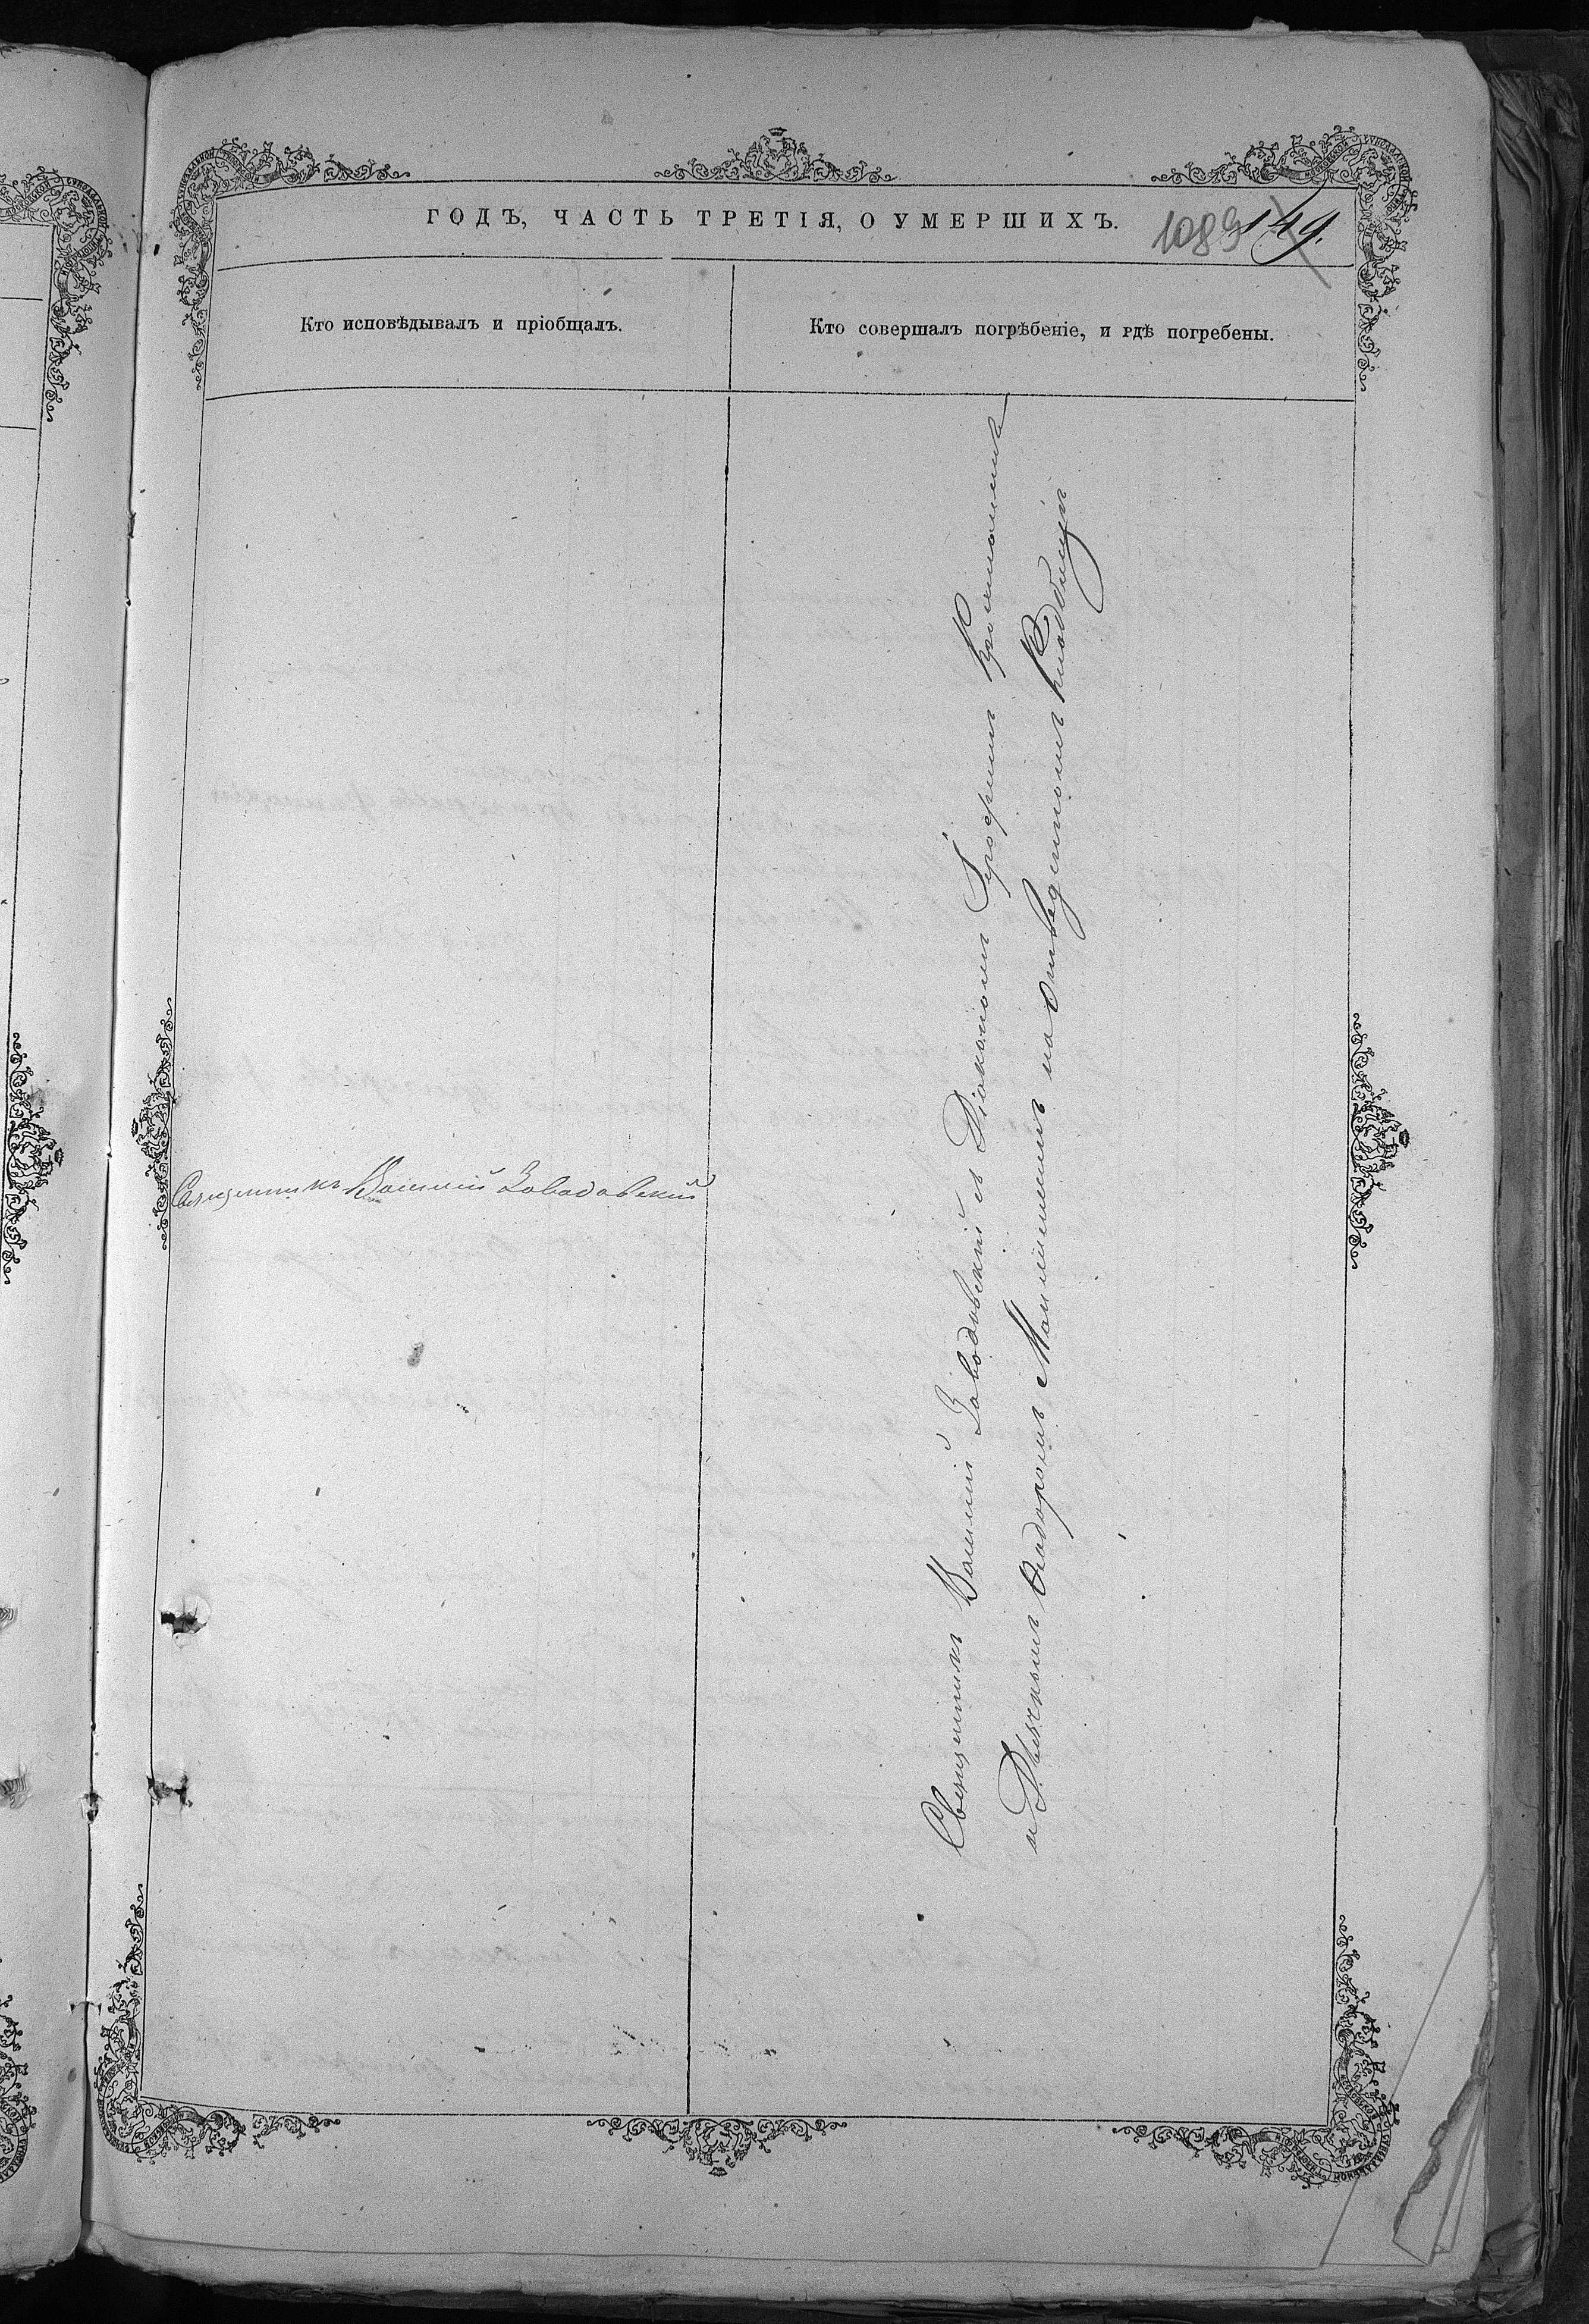 ГОДЪ, ЧАСТЬ ТРЕТІЯ, О УМЕРШИХЪ.
1089 149.
Кто исповѣдывалъ и пріобщалъ.
Кто совершалъ погрѣбеніе, и гдѣ погребены.
Священникъ Василій Завадовскій
Священникъ Василій Завадовскій съ Діакономъ
и Дьячкомъ Ѳеодоромъ на отведенномъ Кладбищѣ